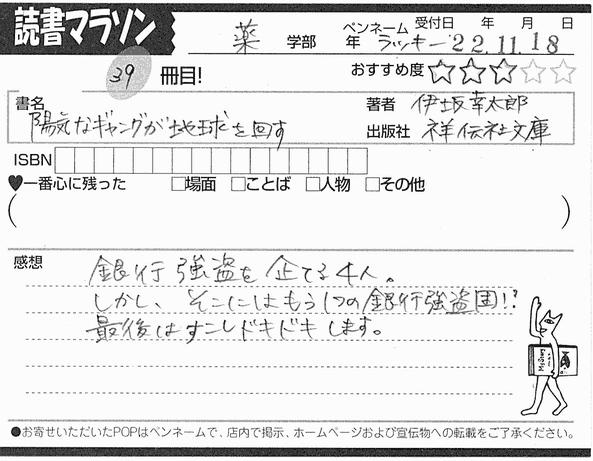 読書マラソン
ペンネーム 受付日 年 月 日
薬 学部 年 ラッキー 22.11.18
39 冊目!
おすすめ度 ★★★☆☆
書名 著者 伊坂幸太郎
陽気なギャングが地球を回す
出版社 祥伝社文庫
ISBN
♥一番心に残った □場面 □ことば □人物 □その他
( )
感想
銀行強盗を企てる4人。
しかし、そこにはもう1つの銀行強盗団!?
最後はすこしドキドキします。
●お寄せいただいたPOPはペンネームで、店内で掲示、ホームページおよび宣伝物への転載をご了承ください。